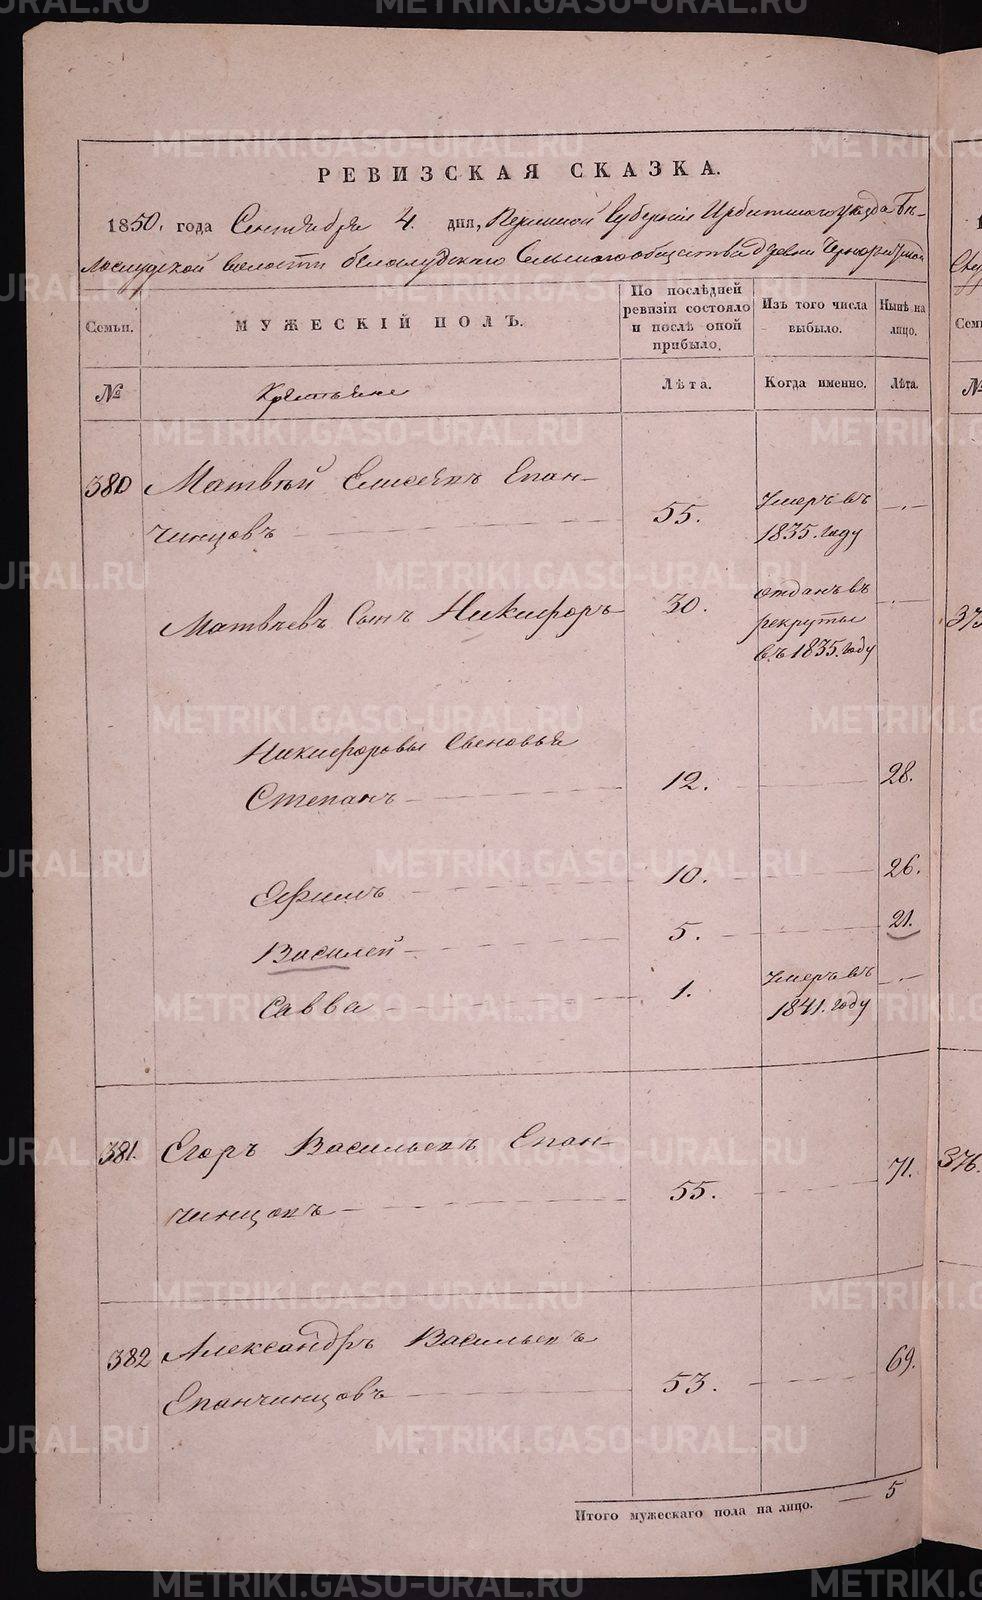 РЕВИЗСКАЯ СКАЗКА.
1850. года Сентября 4. дня, Пермской Губернiи Ирбитскаго уѣзда Бѣ-
лослудской волости белослудскаго Сельскаго общества деревни
Семьи.
МУЖЕСКІЙ ПОЛЪ.
По послѣдней ревизіи состояло и послѣ оной прибыло.
Изъ того числа выбыло.
Нынѣ на лицо.
№
Крестьяне
Лѣта.
Когда именно.
Лѣта.
380 Матвѣй Елисѣевъ Епан-
чинцовъ 55. Умеръ въ 1835. году
Матвѣевъ Сынъ Никифоръ 30. отданъ въ рекруты въ 1835. году
Никифоровы Сыновья
Степанъ 12. 28.
Ефимъ 10. 26.
Василей 5. 21.
Савва 1. Умеръ въ 1841. году
381. Егоръ Васильевъ Епан-
чинцовъ 55. 71.
382 Александръ Васильевъ
Епанчинцовъ 53. 69.
Итого мужескаго пола на лицо. — 5
Семьи
№
375
376.
METRIKI.GASO-URAL.RU